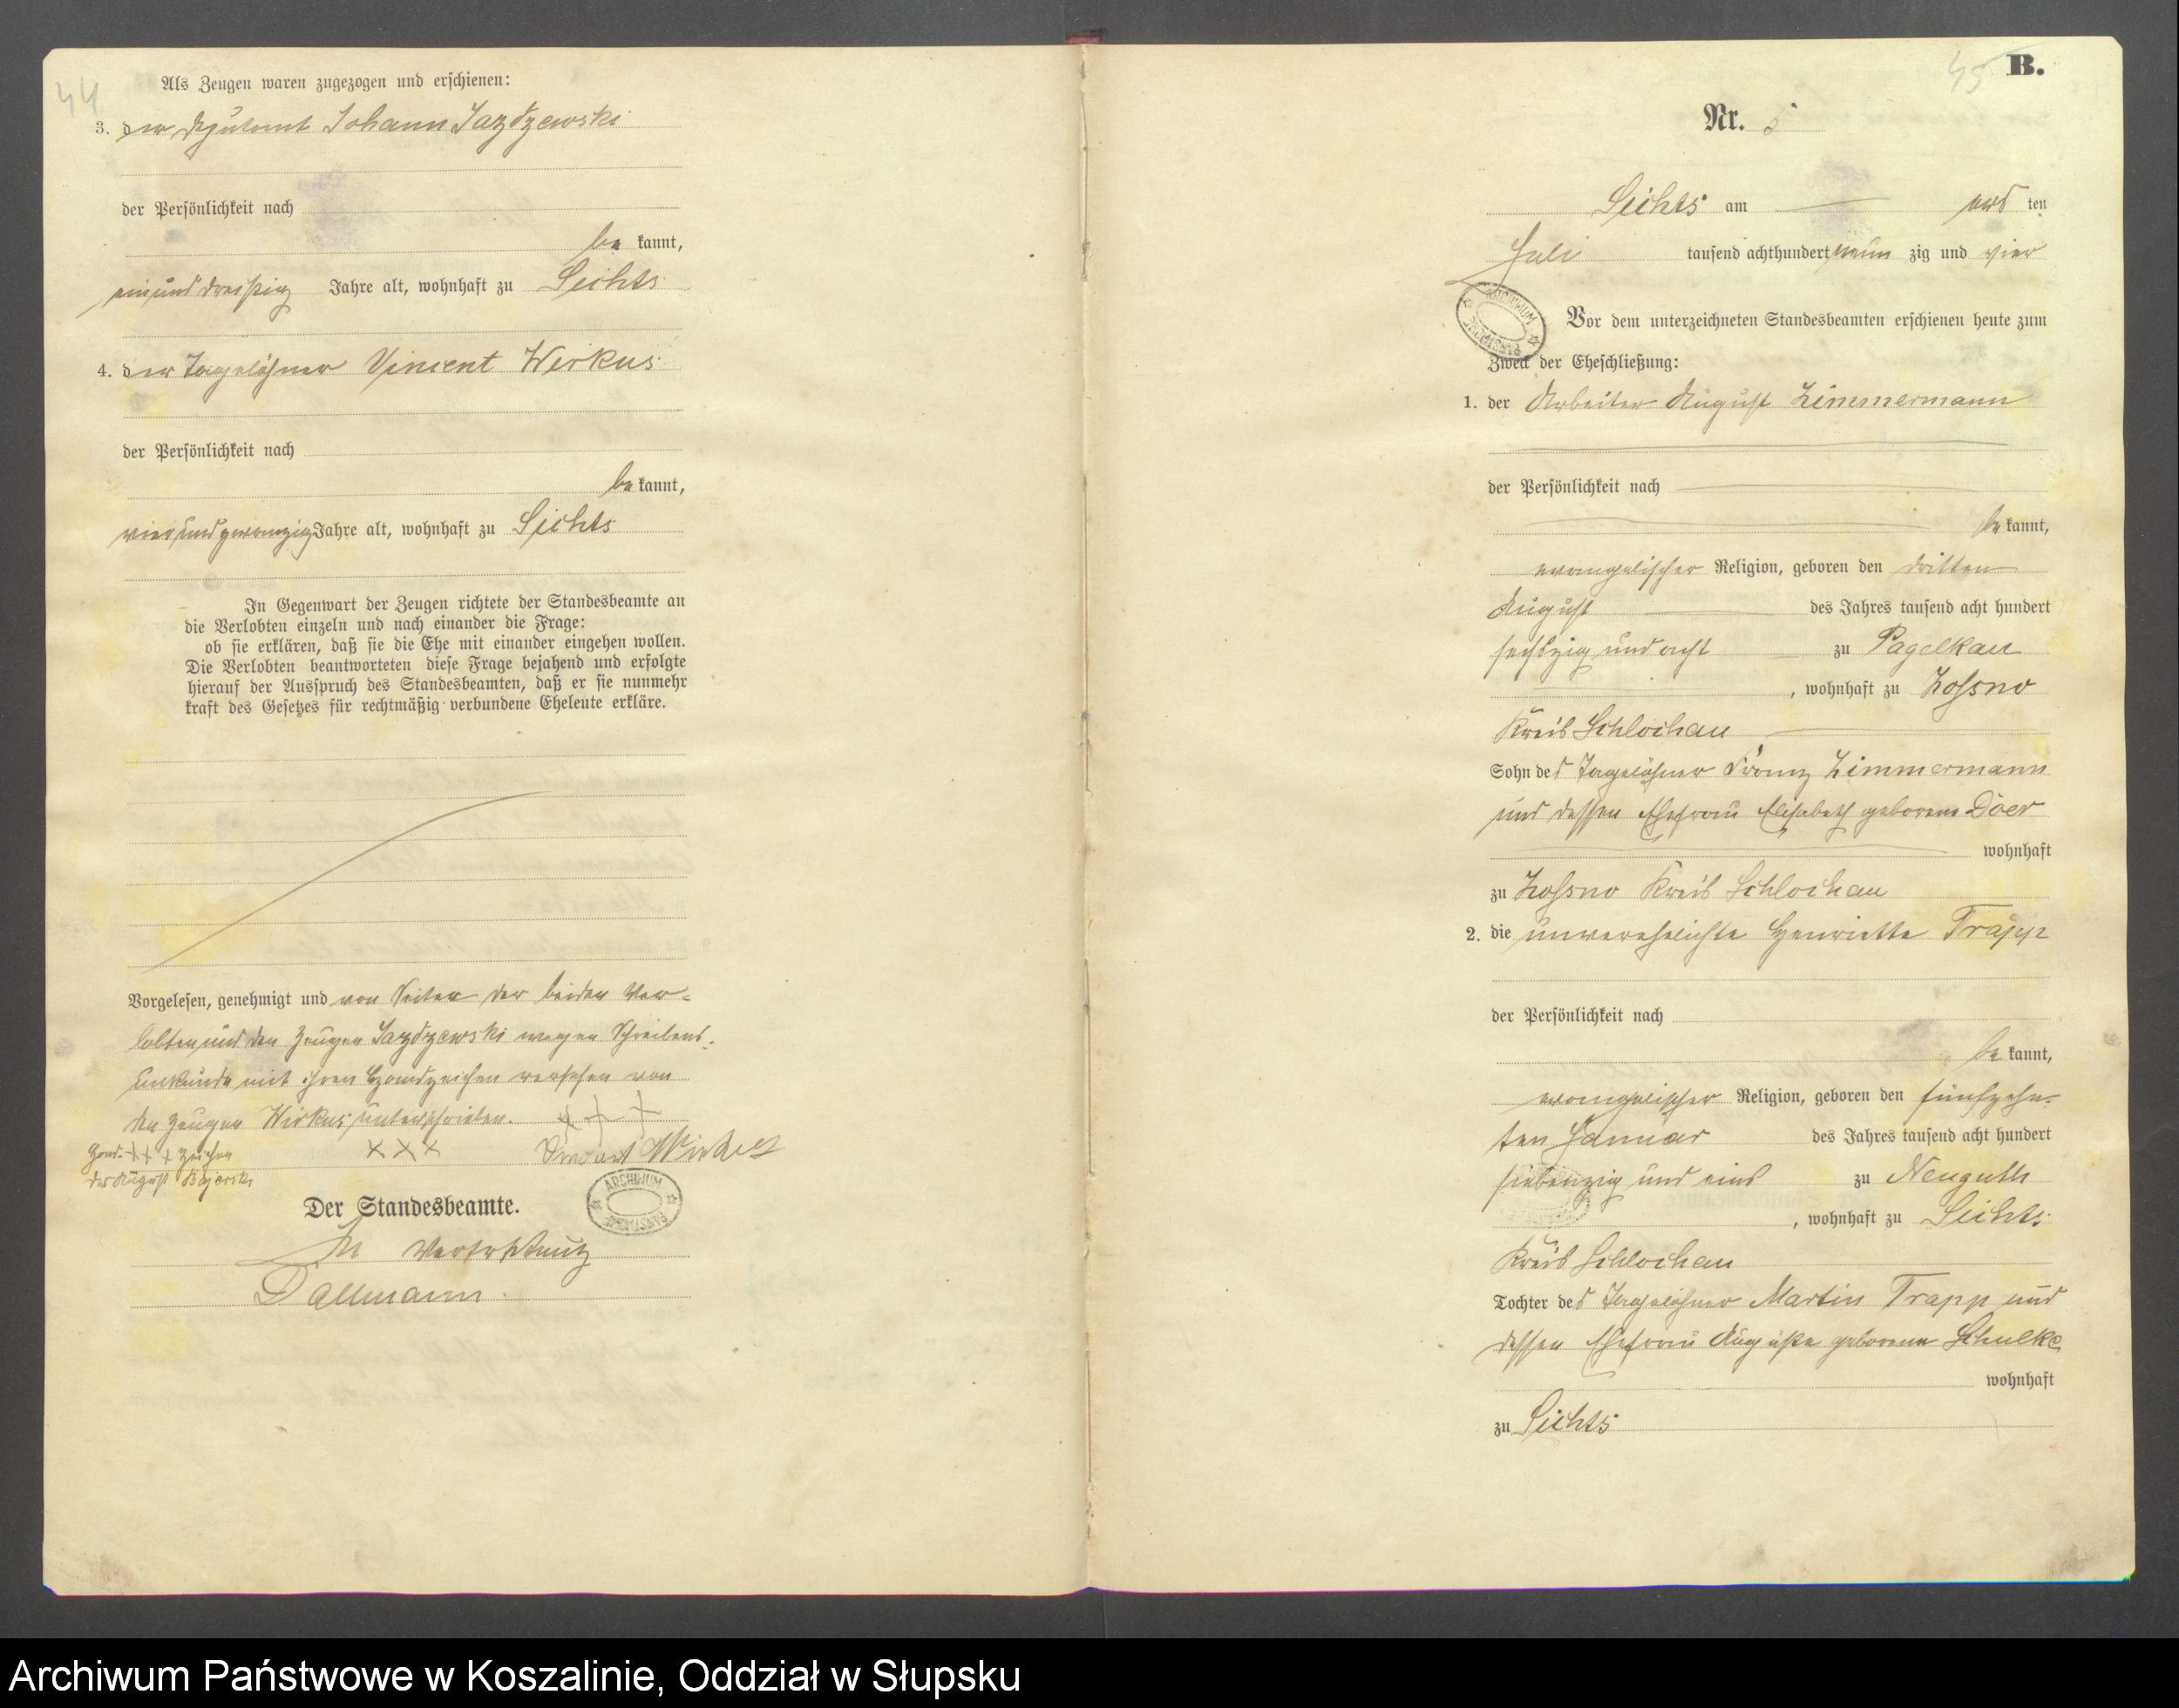 44
Als Zeugen waren zugezogen und erschienen:
3. der Deputant Johann Jazdzewski
der Persönlichkeit nach
be kannt,
einund dreißig Jahre alt, wohnhaft zu Lichts
4. der Tagelöhner Vincent Wirkus
der Persönlichkeit nach
be kannt,
vierundzwanzig Jahre alt, wohnhaft zu Lichts
In Gegenwart der Zeugen richtete der Standesbeamte an
die Verlobten einzeln und nach einander die Frage:
ob sie erklären, daß sie die Ehe mit einander eingehen wollen.
Die Verlobten beantworteten diese Frage bejahend und erfolgte
hierauf der Ausspruch des Standesbeamten, daß er sie nunmehr
kraft des Gesetzes für rechtmäßig verbundene Eheleute erkläre.
Vorgelesen, genehmigt und von Seiten der beiden Ver-
lobten und den Zeugen Jazdzewski wegen Schreibens-
unkunde mit ihren Handzeichen versehen von
den Zeugen Wirkus unterschrieben. + + +
Hand- + + + Zeichen × × × Vincent Wirkus
des August
Der Standesbeamte.
In Vertretung
Dallmann.
ARCHIWUM PAŃSTWOWE
45 B.
Nr. 5
Lichts am ten
Juli tausend achthundert neun zig und vier
ARCHIWUM PAŃSTWOWE
Vor dem unterzeichneten Standesbeamten erschienen heute zum
Zweck der Eheschließung:
1. der Arbeiter August Zimmermann
der Persönlichkeit nach
be kannt,
evangelischer Religion, geboren den dritten
August des Jahres tausend acht hundert
sechszig und acht zu Pagelkau
, wohnhaft zu Zossno
Kreis Schlochau
Sohn des Tagelöhner Franz Zimmermann
und dessen Ehefrau Elisabeth geborene Döer
wohnhaft
zu Zossno Kreis Schlochau
2. die unverehelichte Henriette Trapp
der Persönlichkeit nach
be kannt,
evangelischer Religion, geboren den fünfzehn-
ten Januar des Jahres tausend acht hundert
siebenzig und eins zu Neuguth
, wohnhaft zu Lichts
Kreis Schlochau
Tochter des Tagelöhner Martin Trapp und
dessen Ehefrau Auguste geborene Schulke
wohnhaft
zu Lichts
Archiwum Państwowe w Koszalinie, Oddział w Słupsku